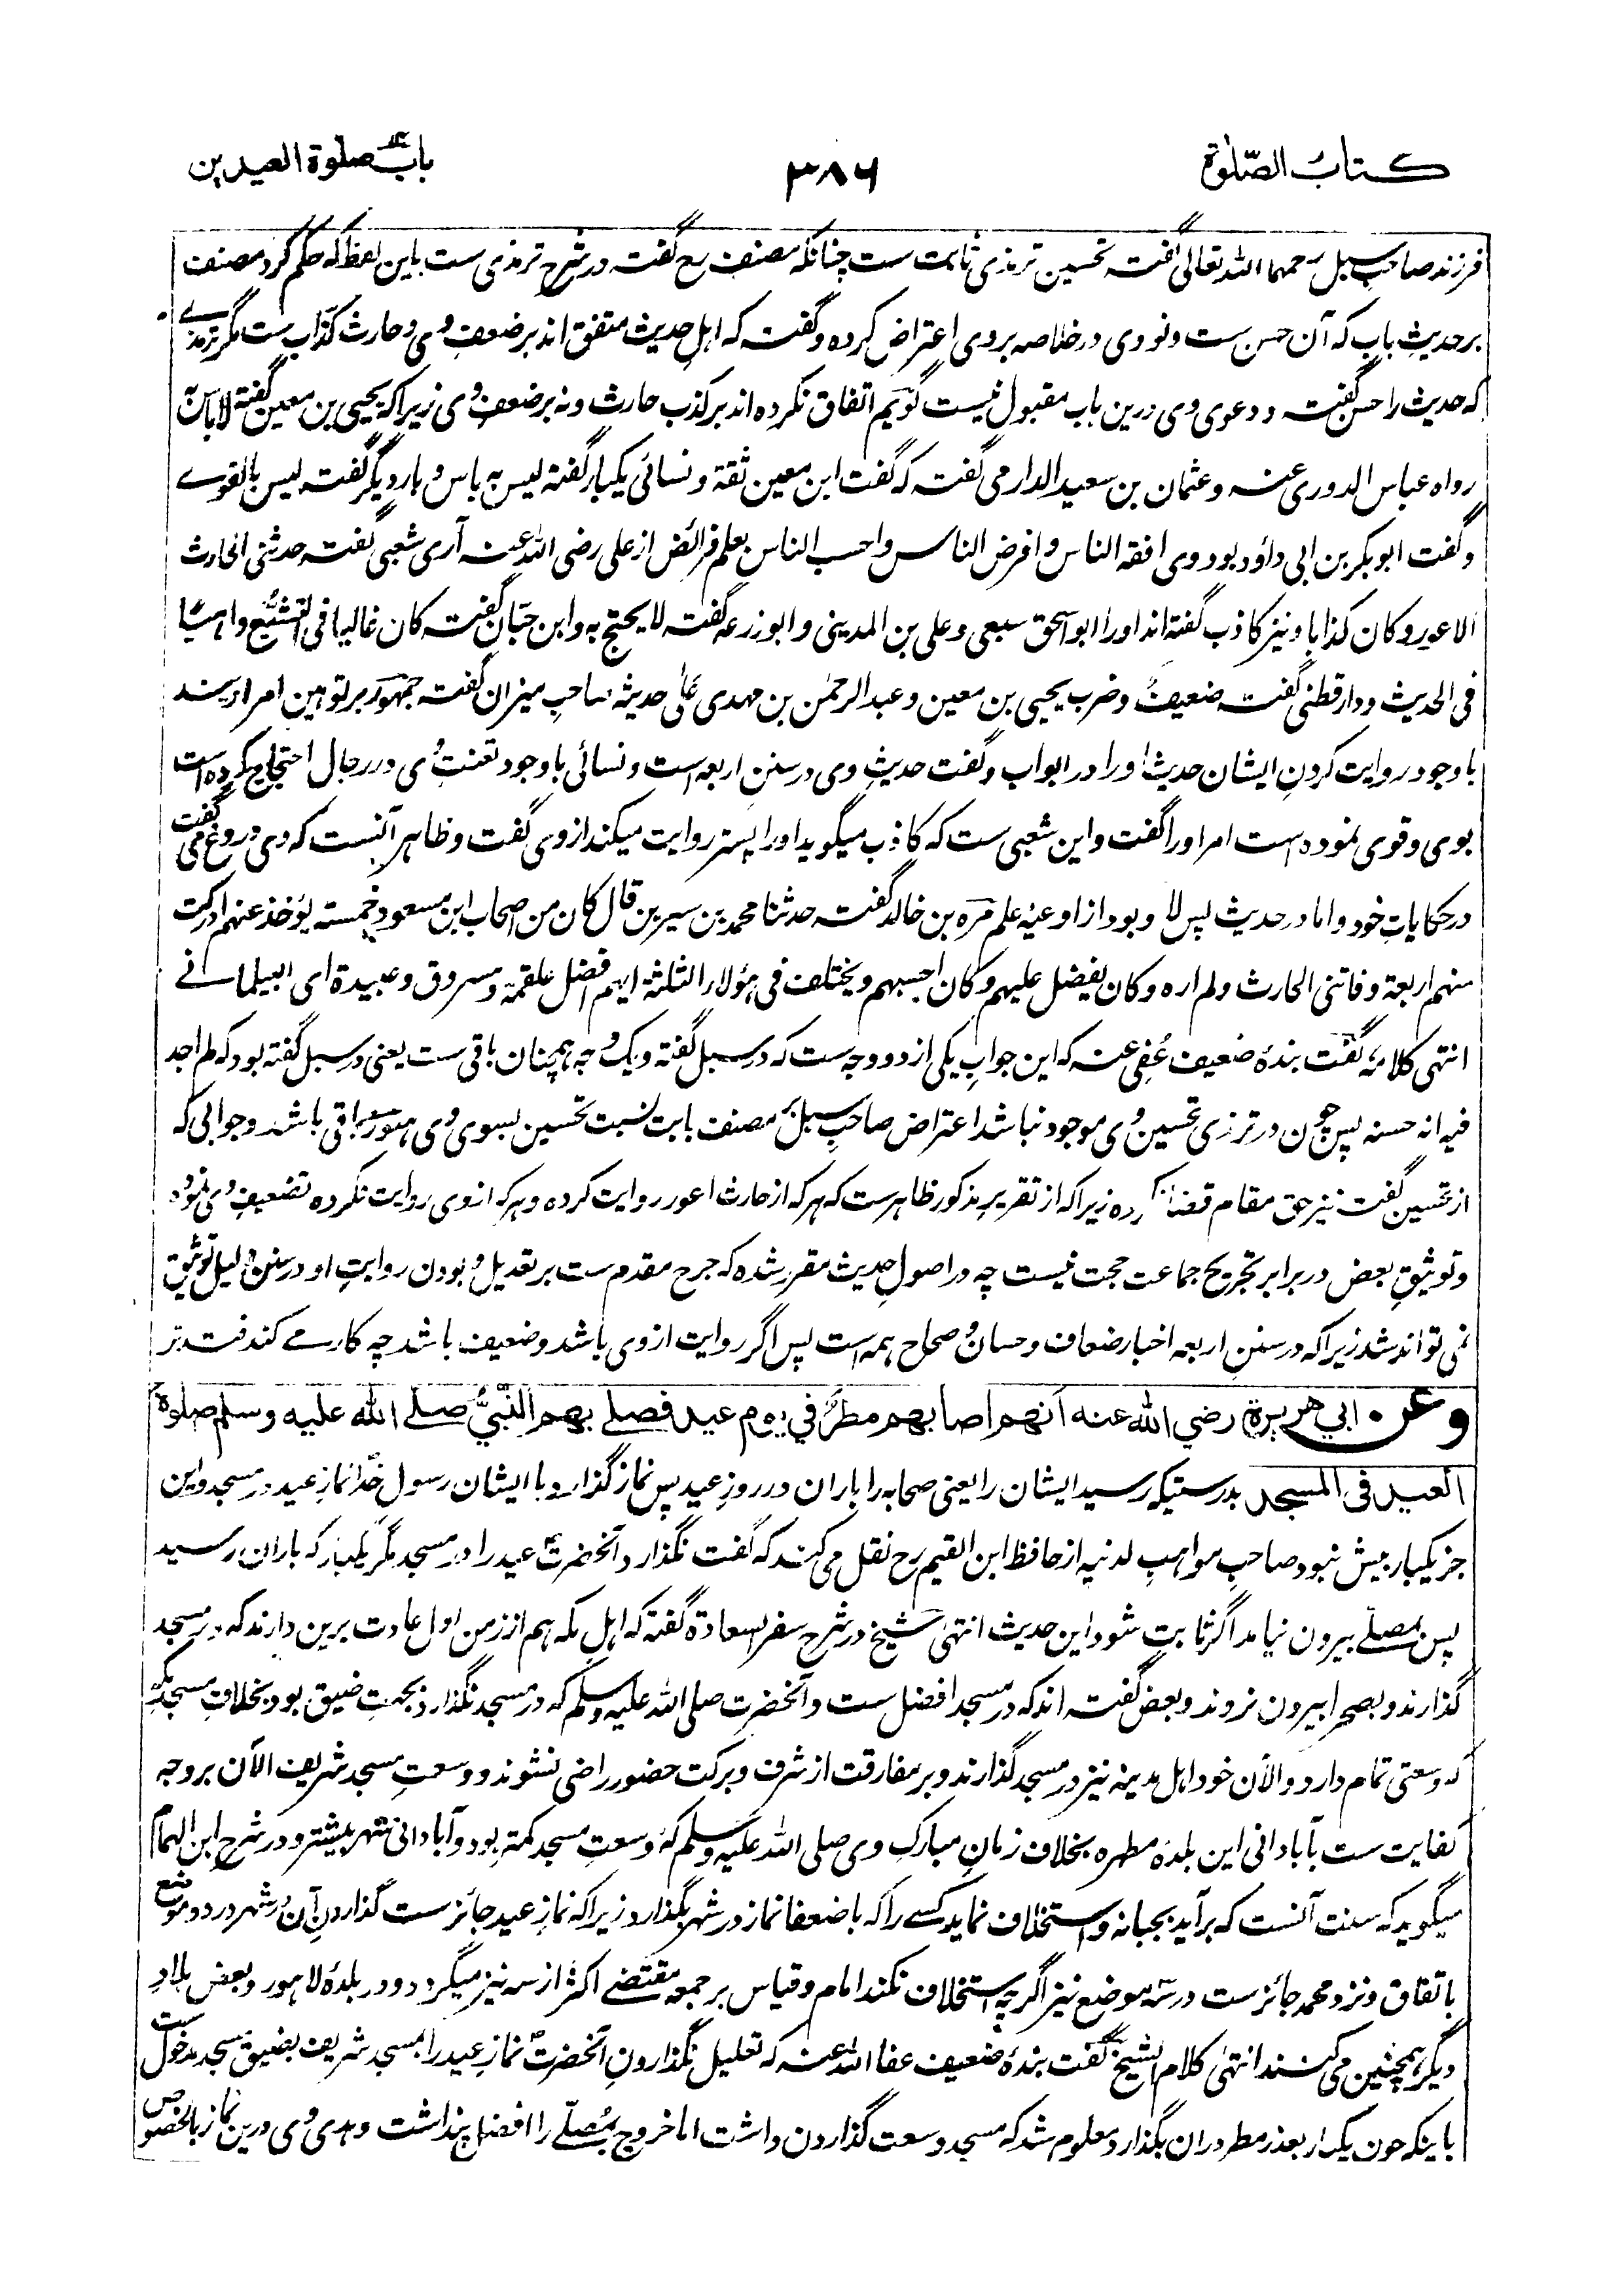 کتاب الصّلوٰة
۳۸۶
باب صلوٰة العیدین
فرزند صاحب سبل رحمهما الله تعالی گفته تحسین ترمذی ثابت ست چنانکه مصنف رح گفته در شرح ترمذی ست باین لفظ که حکم کرد مصنف
بر حدیث باب که آن حسن ست و نووی در خلاصه بر وی اعتراض کرده و گفت که اهل حدیث متفق اند بر ضعف وی و حارث کذّاب ست مگر ترمذی
که حدیث را حسن گفته و دعوی وی درین باب مقبول نیست گویم اتفاق نکرده اند بر کذب حارث و نه بر ضعف وی زیرا که یحیی بن معین گفته لا باس به
رواه عباس الدوری عنه و عثمان بن سعید الدارمی گفت که گفت ابن معین ثقة و نسائی یکبار گفته لیس به باس و بار دیگر گفته لیس بالقوے
و گفت ابو بکر بن ابی داؤد بود وی افقه الناس و افرض الناس و احسب الناس بعلم فرائض از علی رضی الله عنه آری شعبی گفته حدثنی الحارث
الاعور و کان کذابا و نیز کاذب گفته اند او را ابو اسحق سبعی و علی بن المدینی و ابو زرعه گفته لا یحتج به و ابن حبّان گفته کان غالیا فی التشیّع واهیًا
فی الحدیث و دارقطنی گفته ضعیف و ضرب یحیی بن معین و عبد الرحمٰن بن مهدی علی حدیثه صاحب میزان گفته جمهور بر توهین امر اویند
باوجود روایت کردن ایشان حدیث او را در ابواب و گفت حدیث وی در سنن اربعه است و نسائی باوجود تعنت وی در رجال احتجاج کرده است
بوی و قوی نموده است امر او را گفت و این شعبی ست که کاذب میگوید او را پستر روایت میکند از وی گفت و ظاهر آنست که وی دروغ می گفت
در حکایات خود و اما در حدیث پس لا و بود از اوعیهٔ علم مره بن خالد گفته حدثنا محمد بن سیرین قال کان من اصحاب ابن مسعود خمسته یؤخذ عنهم ادرکت
منهم اربعة و فاتنی الحارث و لم اره و کان یفضل علیهم و کان احسبهم و یختلف فی هؤلاء الثلثة ایهم افضل علقمة و مسروق و عبیدة ای السلمانے
انتهی کلامه گفت بندهٔ ضعیف عُفی عنه که این جواب یکی از دو وجه ست که در سبل گفته و یک وجه همچنان باقی ست یعنی در سبل گفته بود که لم اجد
فیه انه حسنه پس چون در ترمذی تحسین وی موجود نباشد اعتراض صاحب سبل بر مصنف بابت نسبت تحسین بسوی وی هنوز باقی باشد و جوابی که
از تحسین گفت نیز حق مقام قضا نکرده زیرا که از تقریر مذکور ظاهر ست که هر که از حارث اعور روایت کرده و هر که از وی روایت نکرده تضعیف وی نموده
و توثیق بعض در برابر تجریح جماعت حجت نیست چه در اصول حدیث مقرر شده که جرح مقدم ست بر تعدیل و بودن روایت او در سنن دلیل توثیق
نمی تواند شد زیرا که در سنن اربعه اخبار ضعاف و حسان و صحاح همه است پس اگر روایت از وی باشد و ضعیف باشد چه کارمے کند فتدبر
وعن ابي هريرة رضي الله عنه انهم اصابهم مطر في يوم عيد فصلے بهم النَّبيُّ صلے الله عليه وسلم صلوٰة
العید فی المسجد بدرستیکه رسید ایشان را یعنی صحابه را باران در روز عید پس نماز گذارد با ایشان رسول خدا نماز عید در مسجد و این
جز یکبار بیش نبود صاحب مواهب لدنیه از حافظ ابن القیم رح نقل می کند که گفت نگذارد آنحضرت عید را در مسجد مگر یکبار که باران رسید
پس بمصلّے بیرون نیامد اگر ثابت شود این حدیث انتهی شیخ در شرح سفر السعادة گفته که اهل مکه هم از زمن اول عادت برین دارند که در مسجد
گذارند و بصحرا بیرون نروند و بعض گفته اند که در مسجد افضل ست و آنحضرت صلی الله علیه وسلم که در مسجد نگذارد بجهت ضیق بود بخلاف مسجد مکه
که وسعتی تمام دارد و الآن خود اهل مدینه نیز در مسجد گذارند و بر مفارقت از شرف و برکت حضور راضی نشوند و وسعت مسجد شریف الآن بروجه
کفایت ست بآبادانی این بلدهٔ مطهره بخلاف زمان مبارک وی صلی الله علیه وسلم که وسعت مسجد کمتر بود و آبادانی شهر بیشتر و در شرح ابن الهمام
میگوید که سنت آنست که بر آید بجبانه و استخلاف نماید کسے را که با ضعفا نماز در شهر بگذارد زیرا که نماز عید جائز ست گذاردن آن در شهر در دو موضع
باتفاق و نزد محمد جائز ست در سه موضع نیز اگرچه استخلاف نکند امام و قیاس بر جمعه مقتضے اکثر از سه نیز میگردد و در بلدهٔ لاهور و بعض بلاد
دیگر همچنین می کنند انتهیٰ کلام الشیخ گفت بندهٔ ضعیف عفا الله عنه که تعلیل نگذاردن آنحضرت نماز عید را بمسجد شریف بضیق مسجد مدخول ست
باینکه چون یکبار بعذر مطر در ان بگذارد معلوم شد که مسجد وسعت گذاردن داشت اما خروج بمُصلّے را افضل پنداشت و هدی وی درین نماز بالخصوص